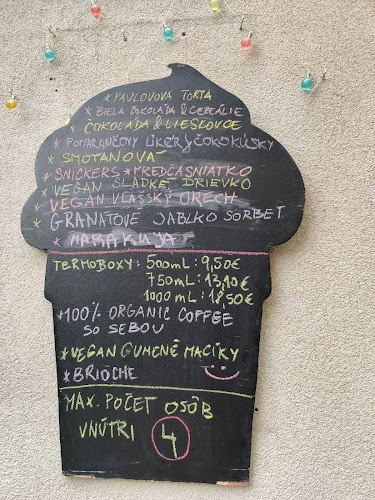 * PAVLOVOVA TORTA
* BIELA ČOKOLÁDA & CEREÁLIE
* ČOKOLÁDA & LIESKOVCE
* POMARANČOVÝ LIKÉR S ČOKOKÚSKY
* SMOTANOVÁ
* SNICKERS * PREDČASNIATKO
* VEGAN SLADKÉ DRIEVKO
* VEGAN VLAŠSKÝ ORECH
* GRANÁTOVÉ JABLKO SORBET
* MARAKUJA
TERMOBOXY: 500mL: 9,50€
750mL: 13,10€
1000mL: 18,50€
* 100% ORGANIC COFFEE
SO SEBOU
* VEGAN GUMENÉ MACÍKY
* BRIOCHE
MAX. POČET OSÔB
VNÚTRI 4